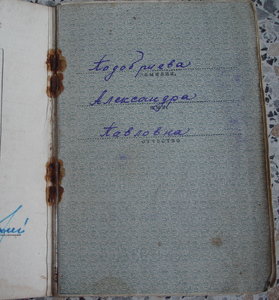 Подобриева
фамилия
Александра
имя
Павловна
отчество